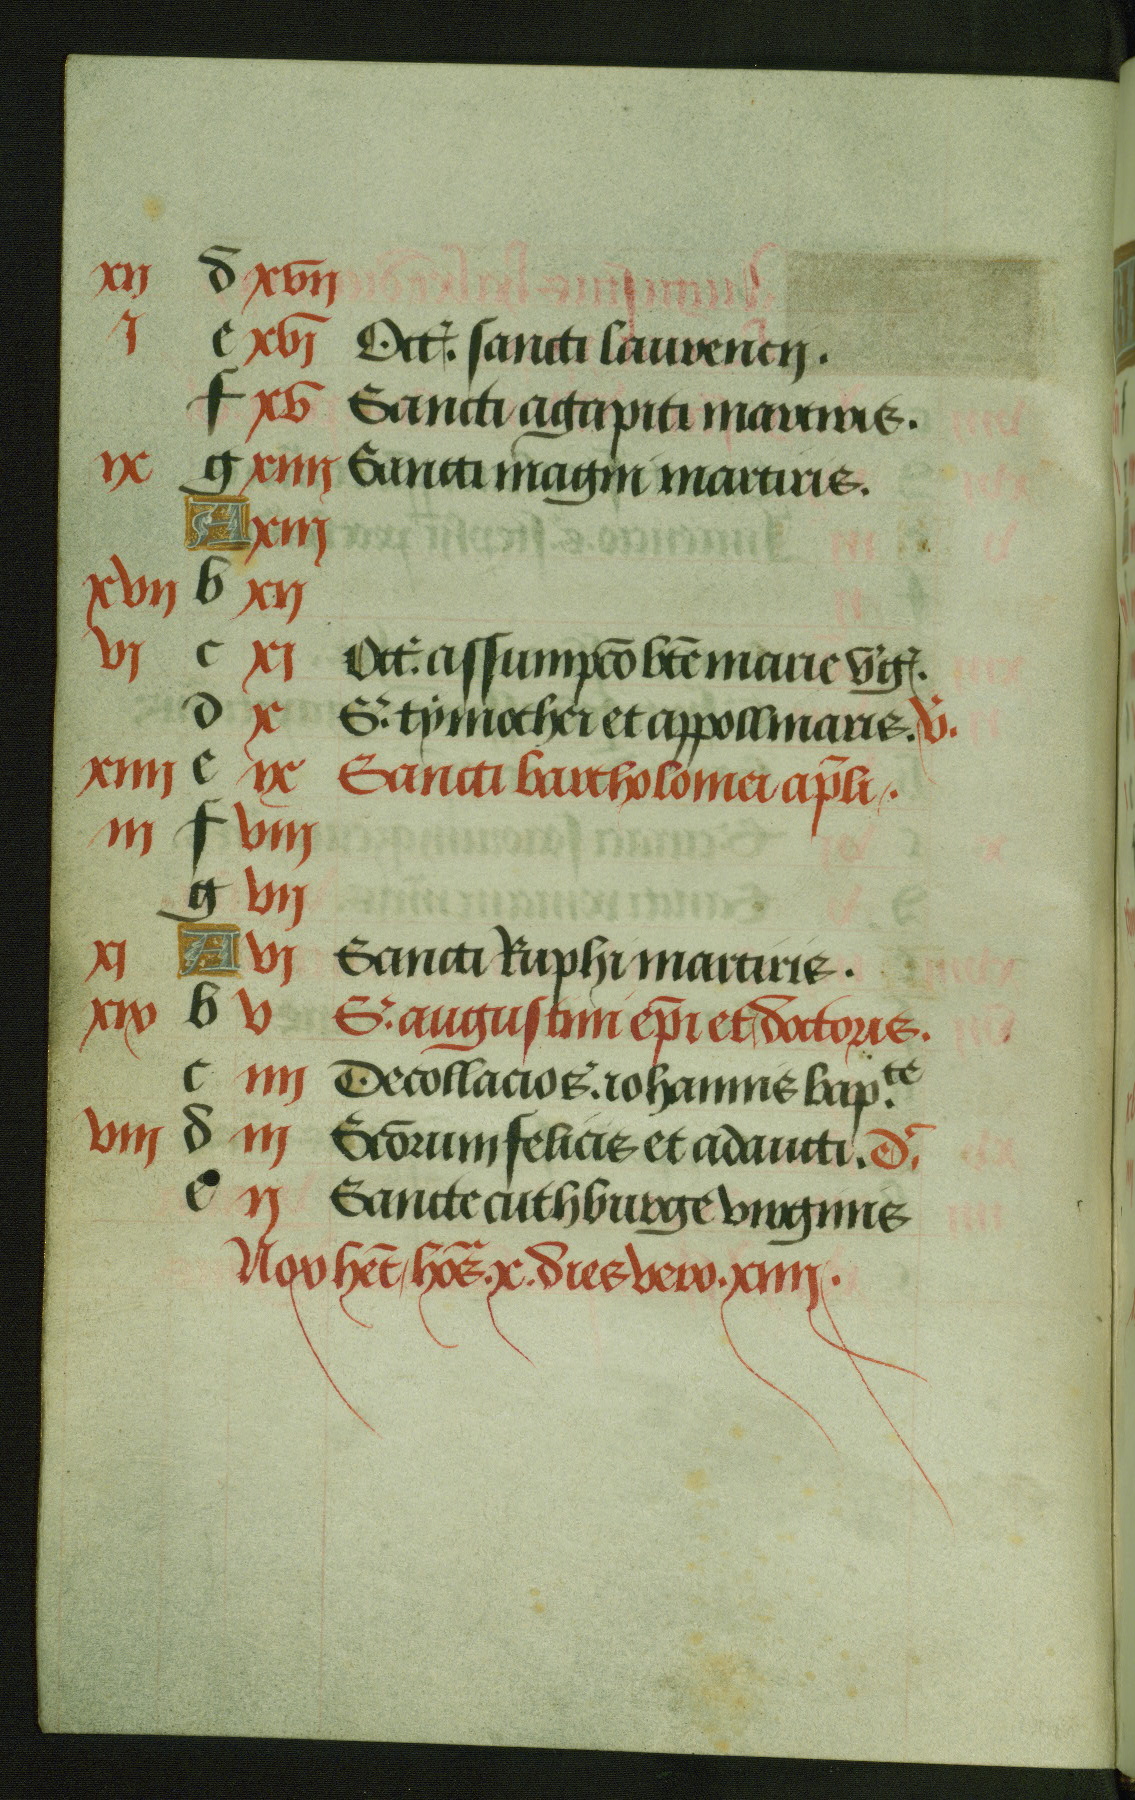 xij d xvij
j e xvj Oct. sancti laurencij.
f xv Sancti agapiti martiris.
ix g xiiij Sancti magni martiris.
A xiij
xvij b xij
vj c xj Oct. assumpcō btē marie v̄ig.
d x S. tymothei et appollinaris. v̄.
xiiij e ix Sancti bartholomei ap̄li.
iij f viij
g vij
xj A vj Sancti Ruphi martiris.
xix b v S. augustini ep̄i et doctoris.
c iiij Decollacio S. iohannis bap.te
viij d iij Scōrum felicis et adaucti. d.
e ij Sancte cuthburge virginis
Nox hēt hōs. x. dies vero. xiiij.